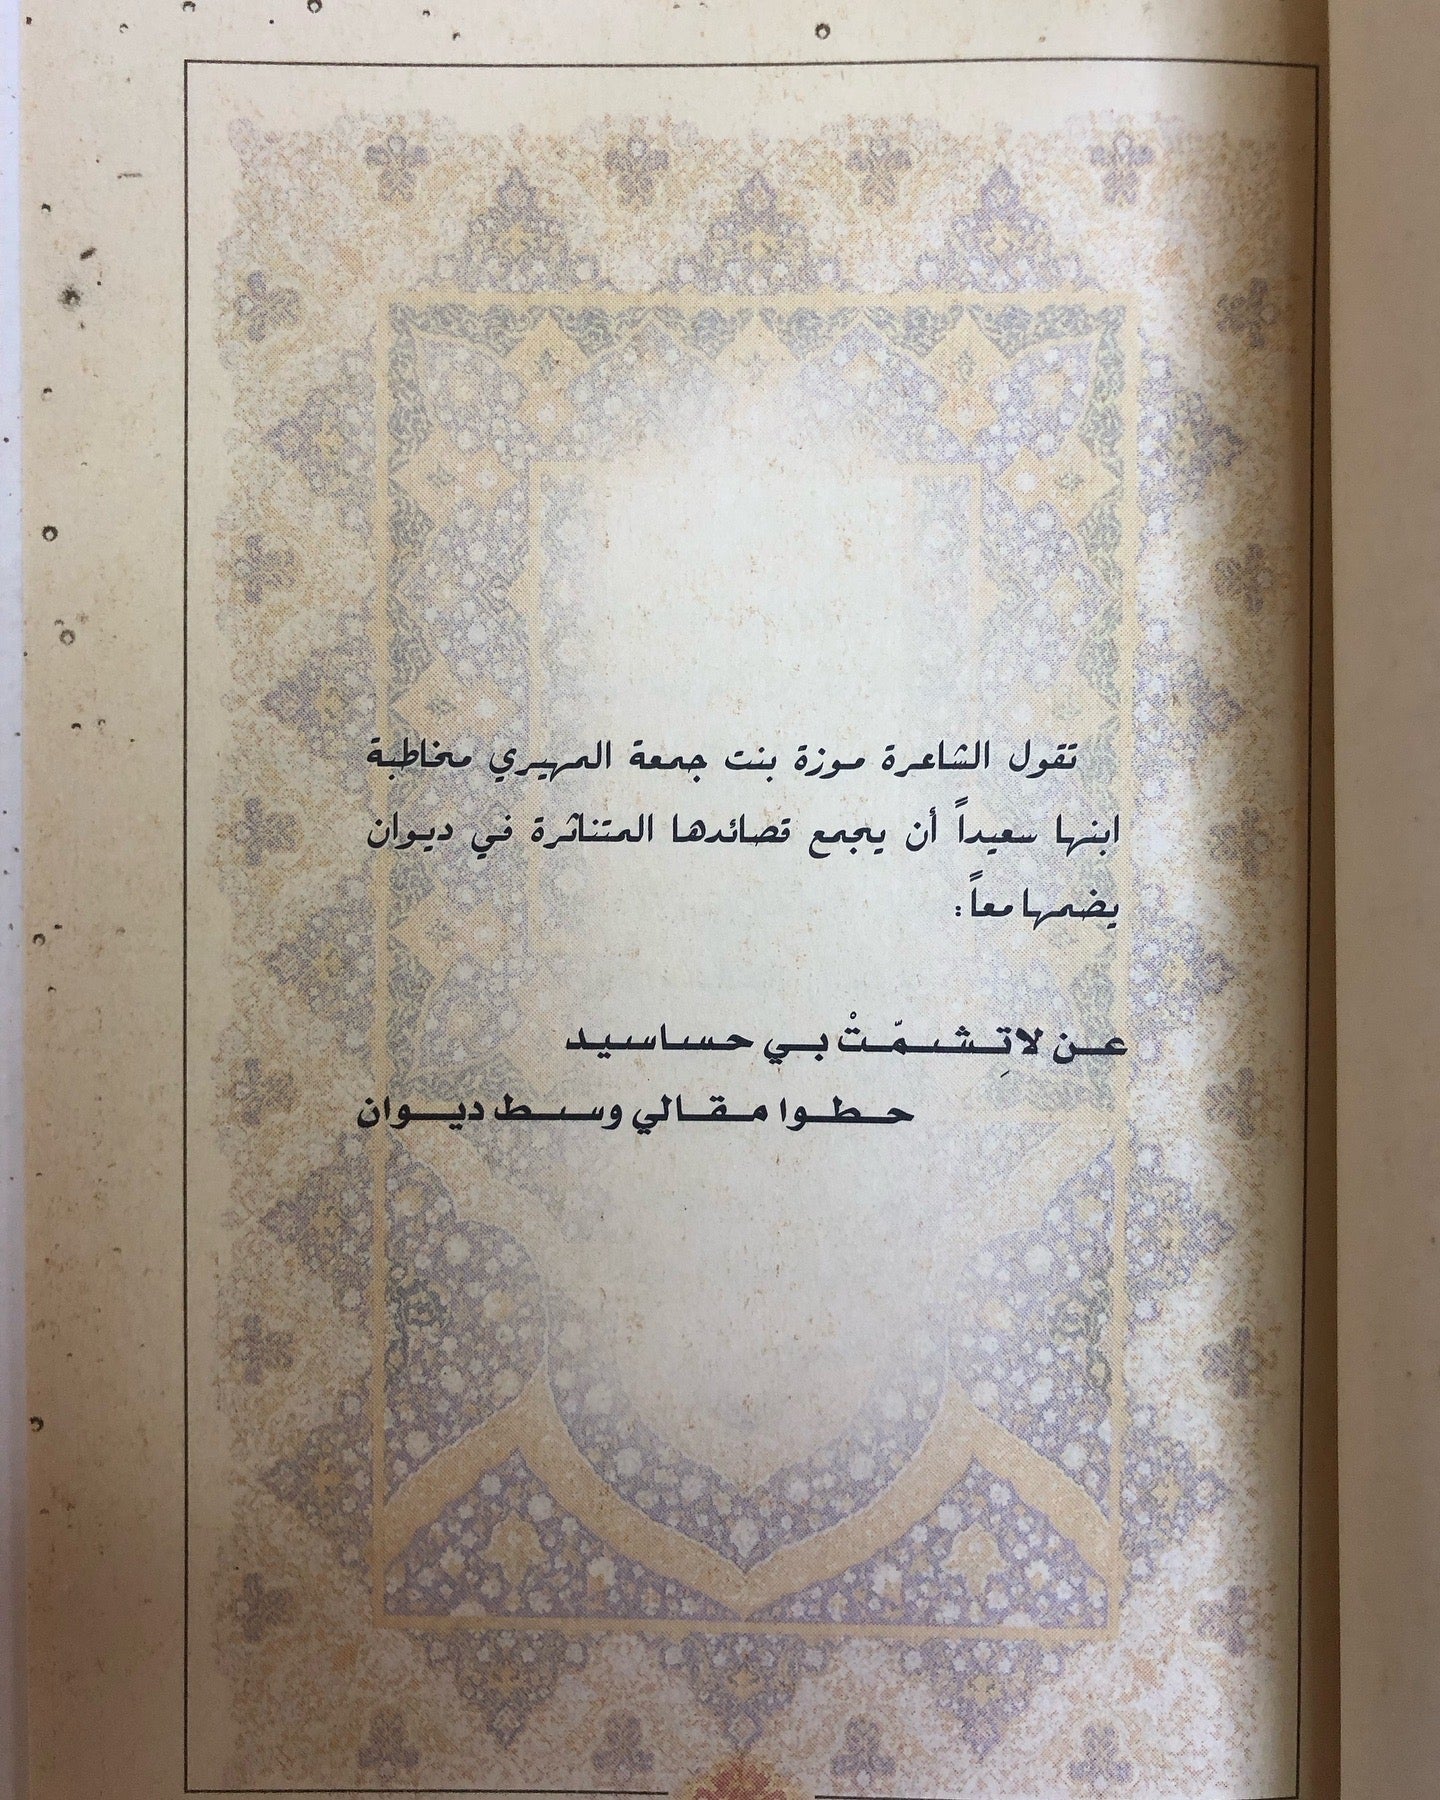 تقول الشاعرة موزة بنت جمعة المهيري مخاطبة
ابنها سعيداً أن يجمع قصائدها المتناثرة في ديوان
يضمها معاً:
عن لاتِشمّتْ بي حساسيد
حطوا مقالي وسط ديوان